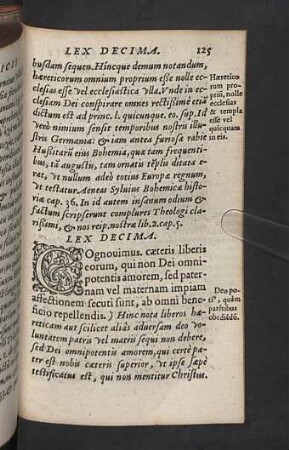 LEX DECIMA. 125
busdam sequen. Hincque demum notandum,
hæreticorum omnium proprium esse nolle ec-
clesias esse vel ecclesiastica vlla. Vnde in ec-
clesiam Dei conspirare omnes rectissimè etiā
dictum est ad princ. l. quicunque. eo. sup. Id
verò nimium sensit temporibus nostris illu-
stris Germania: & iam antea furiosa rabie
Hussitarū eius Bohemia, qua tam frequenti-
bus, tā augustis, tam ornatis tēplis ditata e-
rat, vt nullum adeò totius Europæ regnum,
vt testatur Aeneas Syluius Bohemicæ histo-
riæ cap. 36. In id autem insanum odium &
factum scripserunt complures Theologi cla-
rissimi, & nos resp. nostra lib. 2. cap. 5.
Hæretico
rum pro-
priū, nolle
ecclesias
& templa
esse vel
quicquam
in eis.
LEX DECIMA.
COgnouimus. cæteris liberis
eorum, qui non Dei omni-
potentis amorem, sed pater-
nam vel maternam impiam
affectionem secuti sunt, ab omni bene-
ficio repellendis.) Hinc nota liberos hæ-
reticam aut scilicet aliàs aduersam deo vo-
luntatem patris vel matris sequi non debere,
sed Dei omnipotentis amorem, qui certè pa-
ter est nobis cæteris superior, vt ipse sæpe
testificatus est, qui non mentitur Christus.
Deo po-
ti⁹, quàm
patribus
obediēdū.